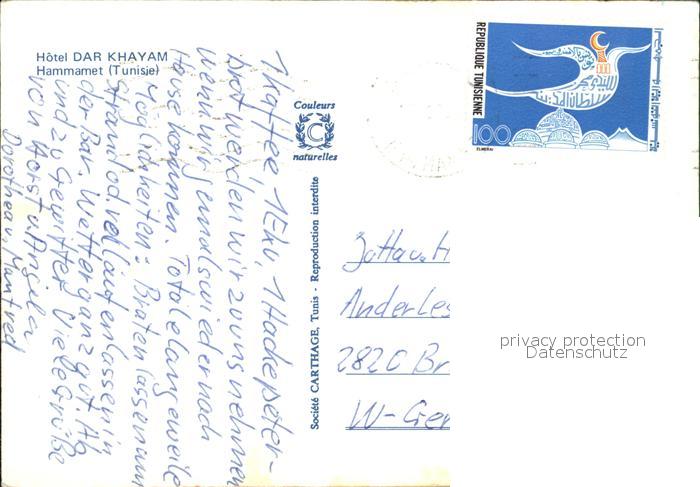 Hôtel DAR KHAYAM
Hammamet (Tunisie)
1 Kaffee, 1 Eku, 1 Hackepeter-
brot werden wir zu uns nehmen
wenn wir jemals wieder nach
Hause kommen. Totale langeweile
Möglichkeiten: Braten lassen am
Strand od. vollaufen lassen in
der Bar. Wetter ganz gut. Ab
und zu Gewitter. Viele Grüße
von Horst u. Angela
Dorothea u. Manfred
Couleurs
C
naturelles
Société CARTHAGE, Tunis - Reproduction interdite
REPUBLIQUE TUNISIENNE
100
Jutta u. H
Anderles
2820 Br
W-Ger
privacy protection
Datenschutz